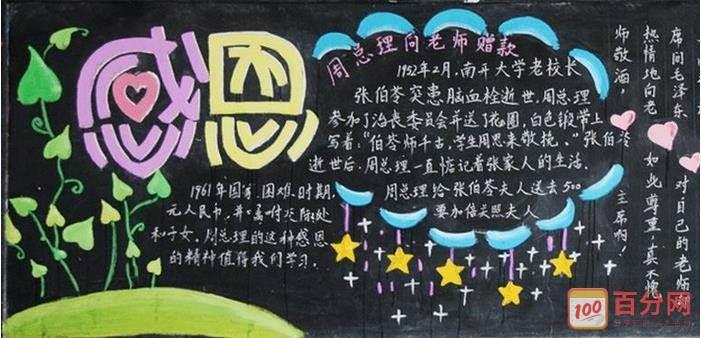 感恩
周总理向老师赠款
1952年2月,南开大学老校长
张伯苓突患脑血栓逝世,周总理
参加了治丧委员会并送了花圈,白色缎带上
写着:“伯苓师千古,学生周恩来敬挽。”张伯苓
逝世后,周总理一直惦记着张家人的生活。
周总理给张伯苓夫人送去500
要加倍关照夫人
1961年国家困难时期,
元人民币,并嘱付
和子女。周总理的这种感恩
的精神值得我们学习。
席间毛泽东
热情地向老
师敬酒,
对自己的老师
如此尊重,真不愧
主席啊!
100
百分网